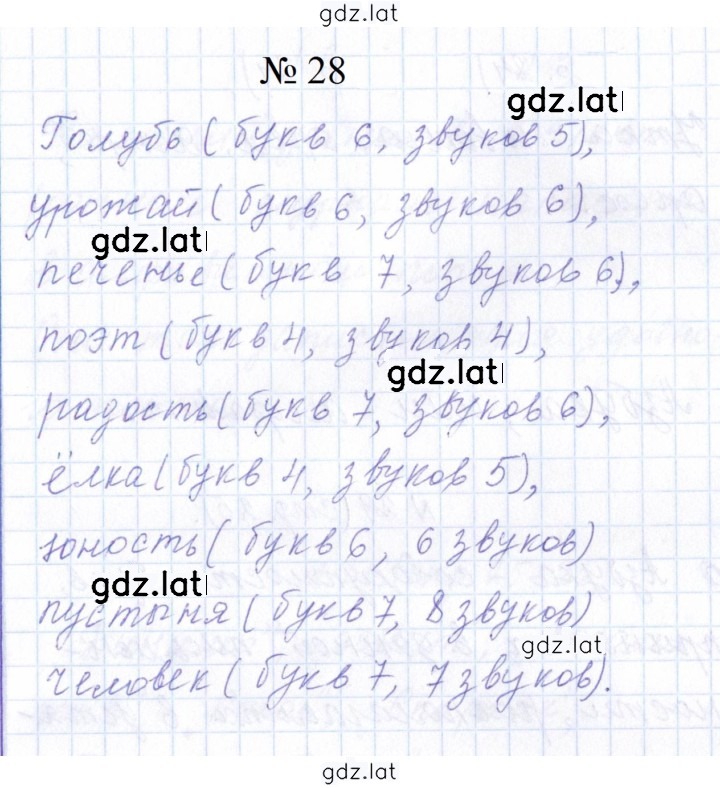 gdz.lat
№ 28
gdz.lat
Голубь (букв 6, звуков 5),
урожай (букв 6, звуков 6),
gdz.lat
печенье (букв 7, звуков 6),
поэт (букв 4, звуков 4),
gdz.lat
радость (букв 7, звуков 6),
ёлка (букв 4, звуков 5),
юность (букв 6, 6 звуков)
gdz.lat
пустыня (букв 7, 8 звуков)
gdz.lat
человек (букв 7, 7 звуков).
gdz.lat